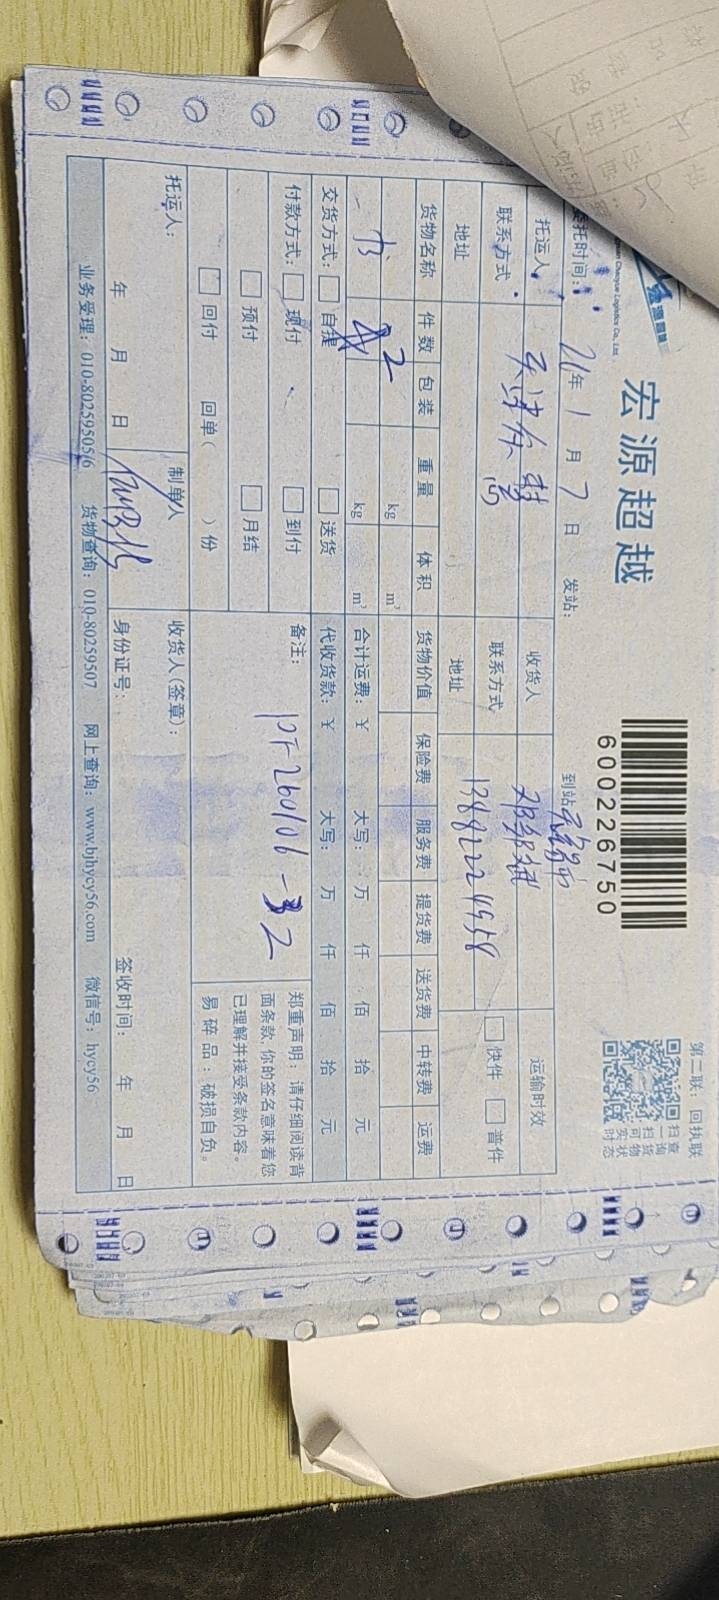 宏源超越
600226750
第二联：回执联
扫一扫可实时
查询货物状态
委托时间： 26年 1月 7日 发站： 到站
托运人 收货人 运输时效
联系方式 联系方式 13882224958 快件 普件
地址 地址
货物名称 件数 包装 重量 体积 货物价值 保险费 服务费 提货费 送货费 中转费 运费
kg m³
书 2 kg m³ 合计运费：￥ 大写： 万 仟 佰 拾 元
交货方式： 自提 送货 代收货款：￥ 大写： 万 仟 佰 拾 元
付款方式： 现付 到付 备注： PF260106-2
预付 月结
回付 回单（ ）份
郑重声明：请仔细阅读背
面条款，你的签名意味着您
已理解并接受条款内容。
易碎品：破损自负。
托运人： 制单人 收货人(签章)：
年 月 日 身份证号： 签收时间： 年 月 日
业务受理：010-80259505/6 货物查询：010-80259507 网上查询：www.bjhycy56.com 微信号：hycy56